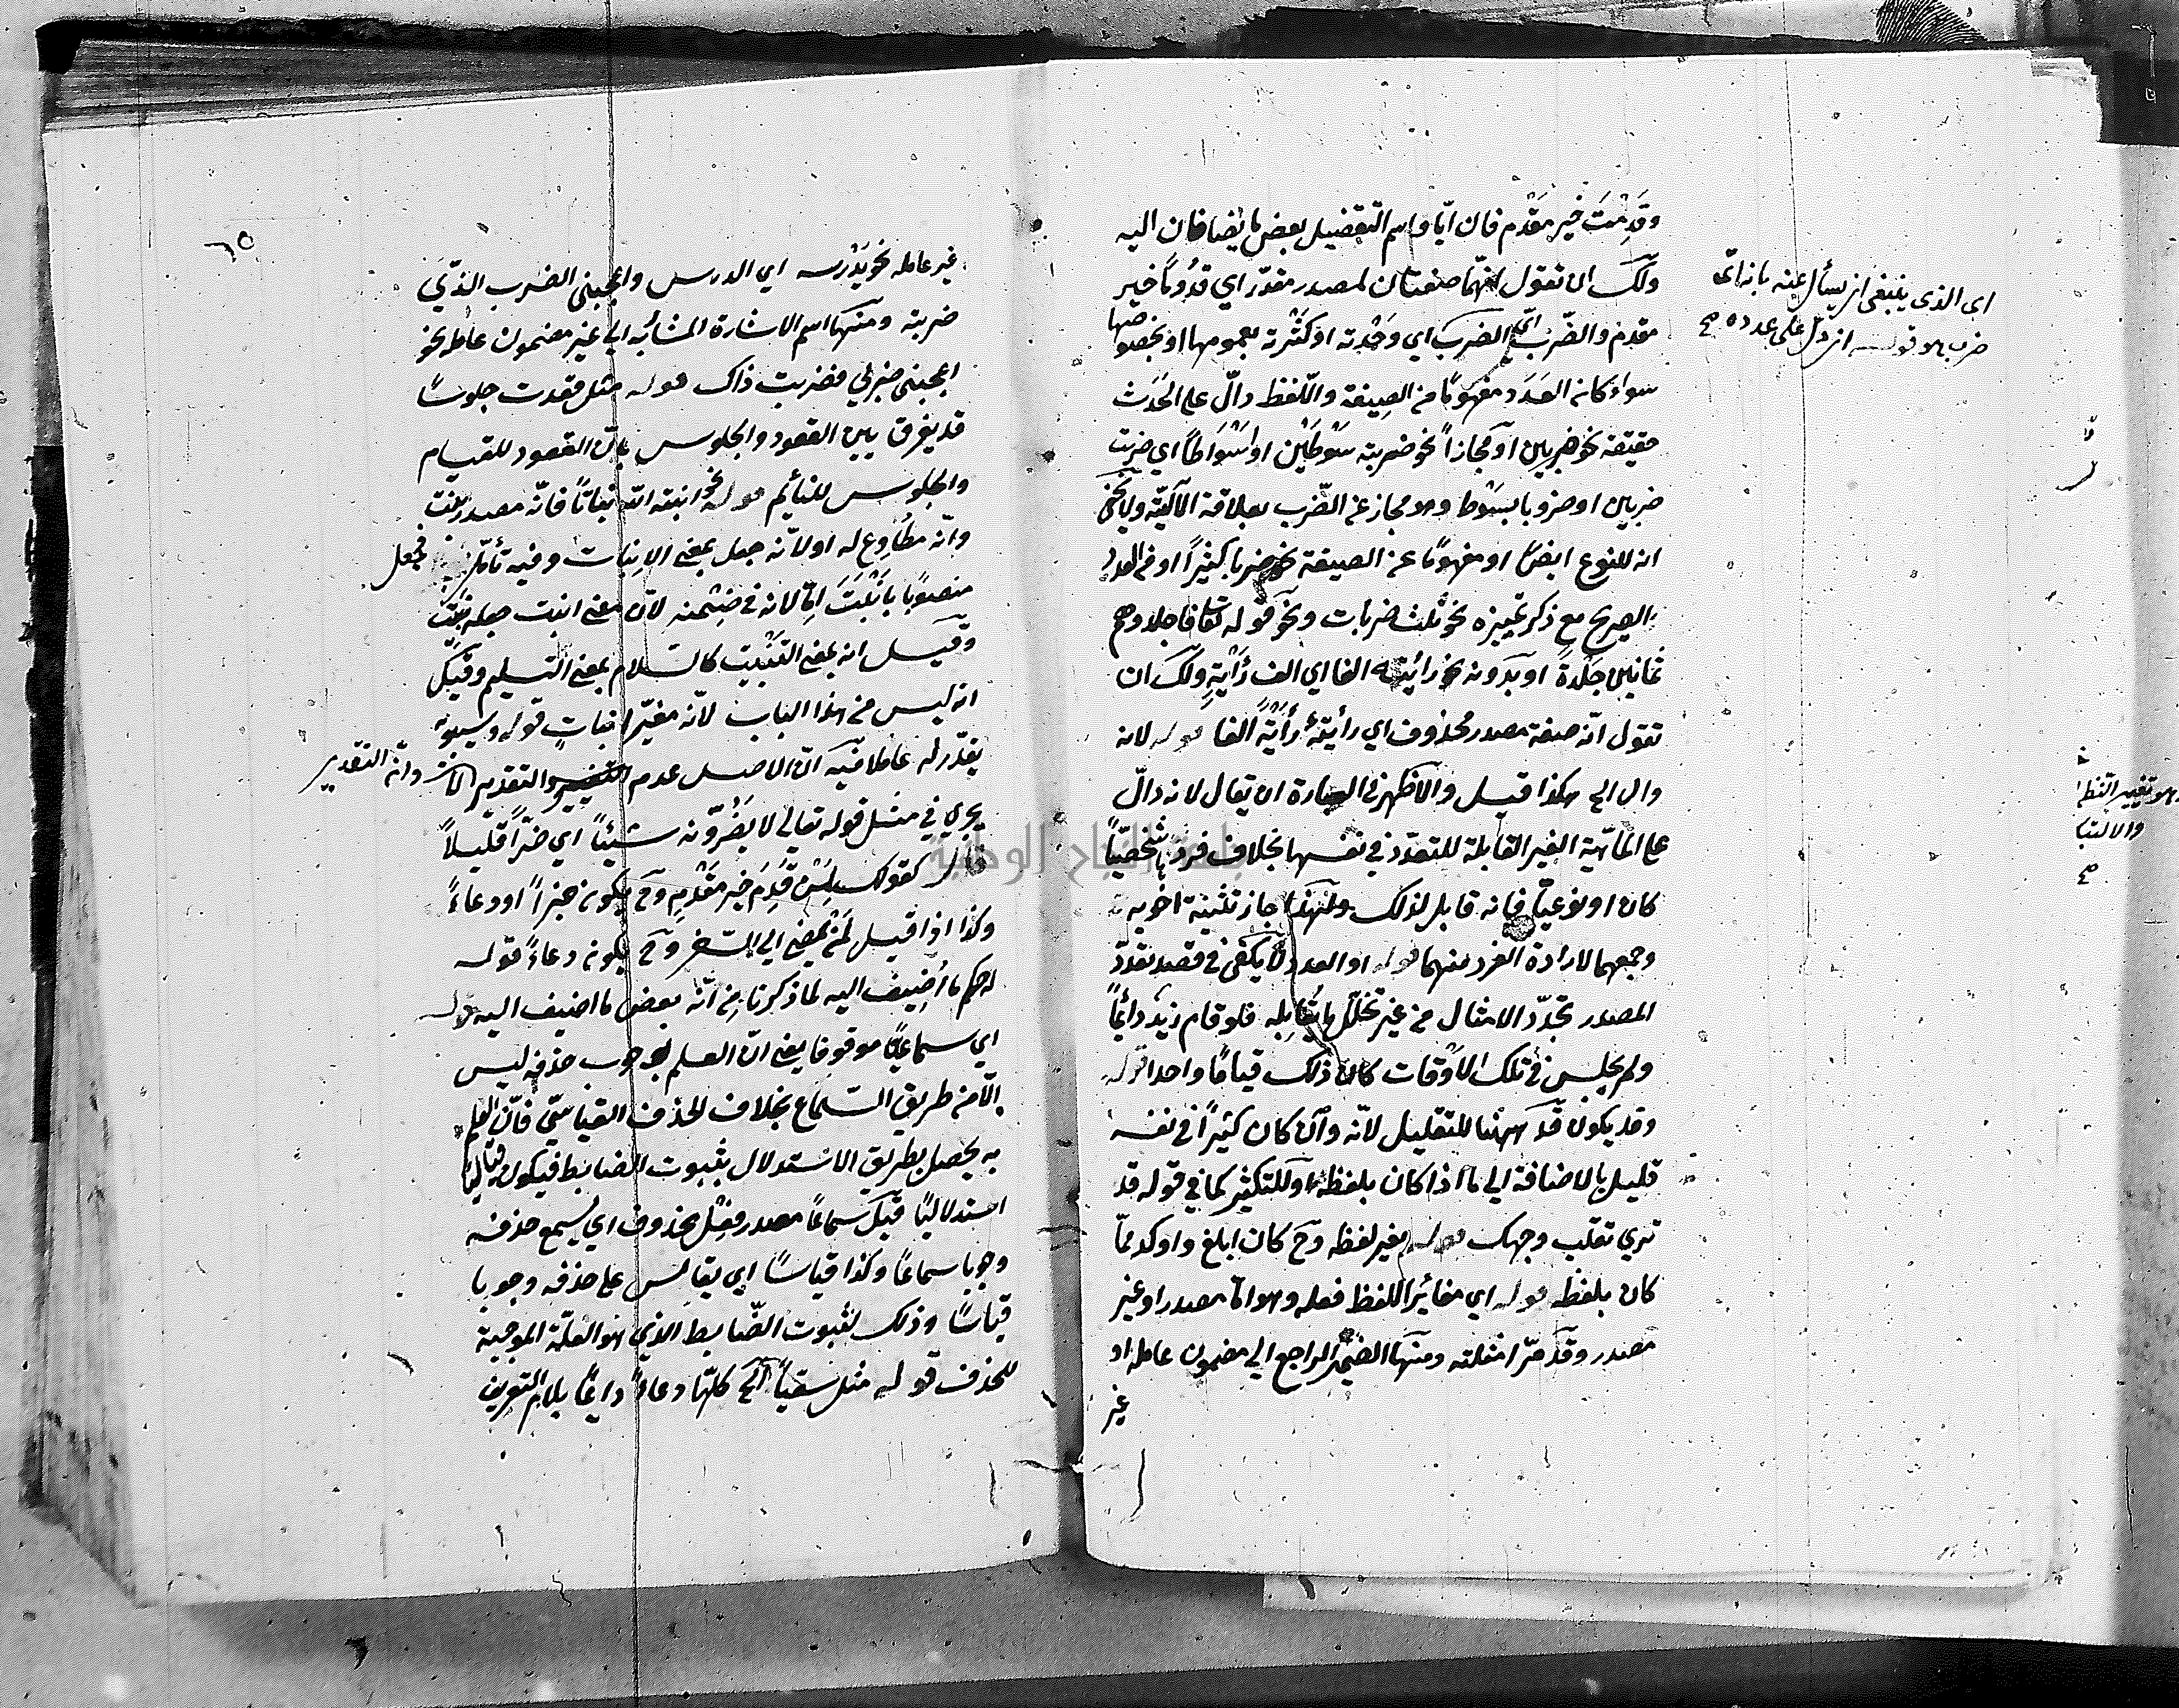 وقَدِمْتَ خير مَقْدم فان ايّا واسم التفضيل بعض ما يضافان اليه
ولك ان تقول انهما صفتان لمصدر مقدّر اي قدُومًا خير
مقدم والضّرب ايّ الضرب اي وَحْدته او كَثْرته بعمومها او بخصوصها
سواء كانه العَدَد مفهومًا من الصِيغة واللّفظ دالّ على الحَدَث
حقيقة نحو ضربين او مجازاً نحو ضربته سَوْطَيْن او اَسْوَاطاً اي ضربت
ضربين او ضروبا بسَوْط وهو مجاز عن الضّرب بعلاقة الآليّة ولا يخفى
انه للنوع ايضًا او مفهومًا عن الصيغة نحو ضربا كثيراً او من العدد
الصريح مع ذكر تمييزه نحو ثلث ضربات ونحو قوله تعالى فاجلدوهم
ثمانين جَلْدةً او بدونه نحو رأيته الفا اي الف رَأْيَةٍ ولك ان
تقول انّه صفة مصدر محذوف اي رأيته رَأْيَةً الفا قوله لانه
دال الى هكذا قيل والاظهر في العبارة ان يقال لانه دالّ
على الماهيّة الغير القابلة للتعدّد في نفسها بخلاف فرد شخصيّاً
كان او نوعيّاً فانه قابل لذلك ولهذا جاز تثنية اخويه
وجمعهما لارادة الفرد منهما قوله او العدد لا يكفي في قصد تعدّد
المصدر تجدّد الامثال من غير تخلّل ما يُقابِله فلو قام زيد دائماً
ولم يجلس في تلك الاوقات كان ذلك قياماً واحدا قوله
وقد يكون قد ههنا للتقليل لانّه وان كان كثيراً في نفسه
قليل بالاضافة الى ما اذا كان بلفظه او للتكثير كما في قوله قد
نرى تقلب وجهك قوله بغير لفظه وح كان ابلغ واوكد ممّا
كان بلفظه قوله اي مغائراً للفظ فعله وهو اما مصدر او غير
مصدر وقد مرّ امثلته ومنها الضمير الراجع الى مضمون عامله او
غير
اى الذى ينبغى ان يسأل عنه بانه اىّ
ضرب هو قوله ان دلّ على عدده صح
وهو تغيير النظم
والالتبا
صح
٦٥
غير عامله نحو يَدْرسه اي الدرس واعجبني الضرب الذي
ضربته ومنها اسم الاشارة المشار به الى غير مضمون عامله نحو
اعجبني ضربي فضربت ذاك قوله مثل قعدت جلوسًا
قد يفرق بين القعود والجلوس بانّ القعود للقيام
والجلوس للنائم قوله نحو انبته الله نباتاً فانّه مصدر نبت
وانّه مطاوع له او لانّه جعل بمعنى الإنبات وفيه تأمّل فجعل
منصوبًا بانْبَتَ اما لانه في ضمنه لانّ معنى انبت جعله نَبَتَ
وقيل انه بمعنى التَنْبيت كالسّلام بمعنى التسليم وقيل
انه ليس من هذا الباب لانّه مغيّر انباتٍ قوله وسيبويه
يقدّر له عاملا فيه انّ الاصل عدم التقدير وانّ التقدير
يجري في مثل قوله تعالى لا يَضُرّونه شيئاً اي ضرّاً قليلاً
قوله كقولك لمن قَدِمَ خير مَقْدمٍ وح يكون خبراً او دعاءً
وكذا اذا قيل لمن يمضي الى السّفر وح يكون دعاءً قوله
له حكم ما أضِيف اليه لما ذكرنا مِن انّه بعض ما اضيف اليه قوله
اي سماعيًا موقوفا يعني انّ العلم بوجوب حذفه ليس
الّا من طريق السّماع بخلاف الحذف القياسيّ فانّ العلم
به يحصل بطريق الاستدلال بثبوت الضابط فيكون قياسيًا
استدلاليًا قيل سماعًا مصدر فِعْلٍ محذوف اي يُسمع حذفه
وجوبا سماعًا وكذا قياسًا اي يقاس على حذفه وجوبا
قياسًا وذلك لثبوت الضّابط الذي هو العلّة الموجبة
للحذف قوله مثل سقياً الخ كلّها دعاءً دائمًا بلام التعريف